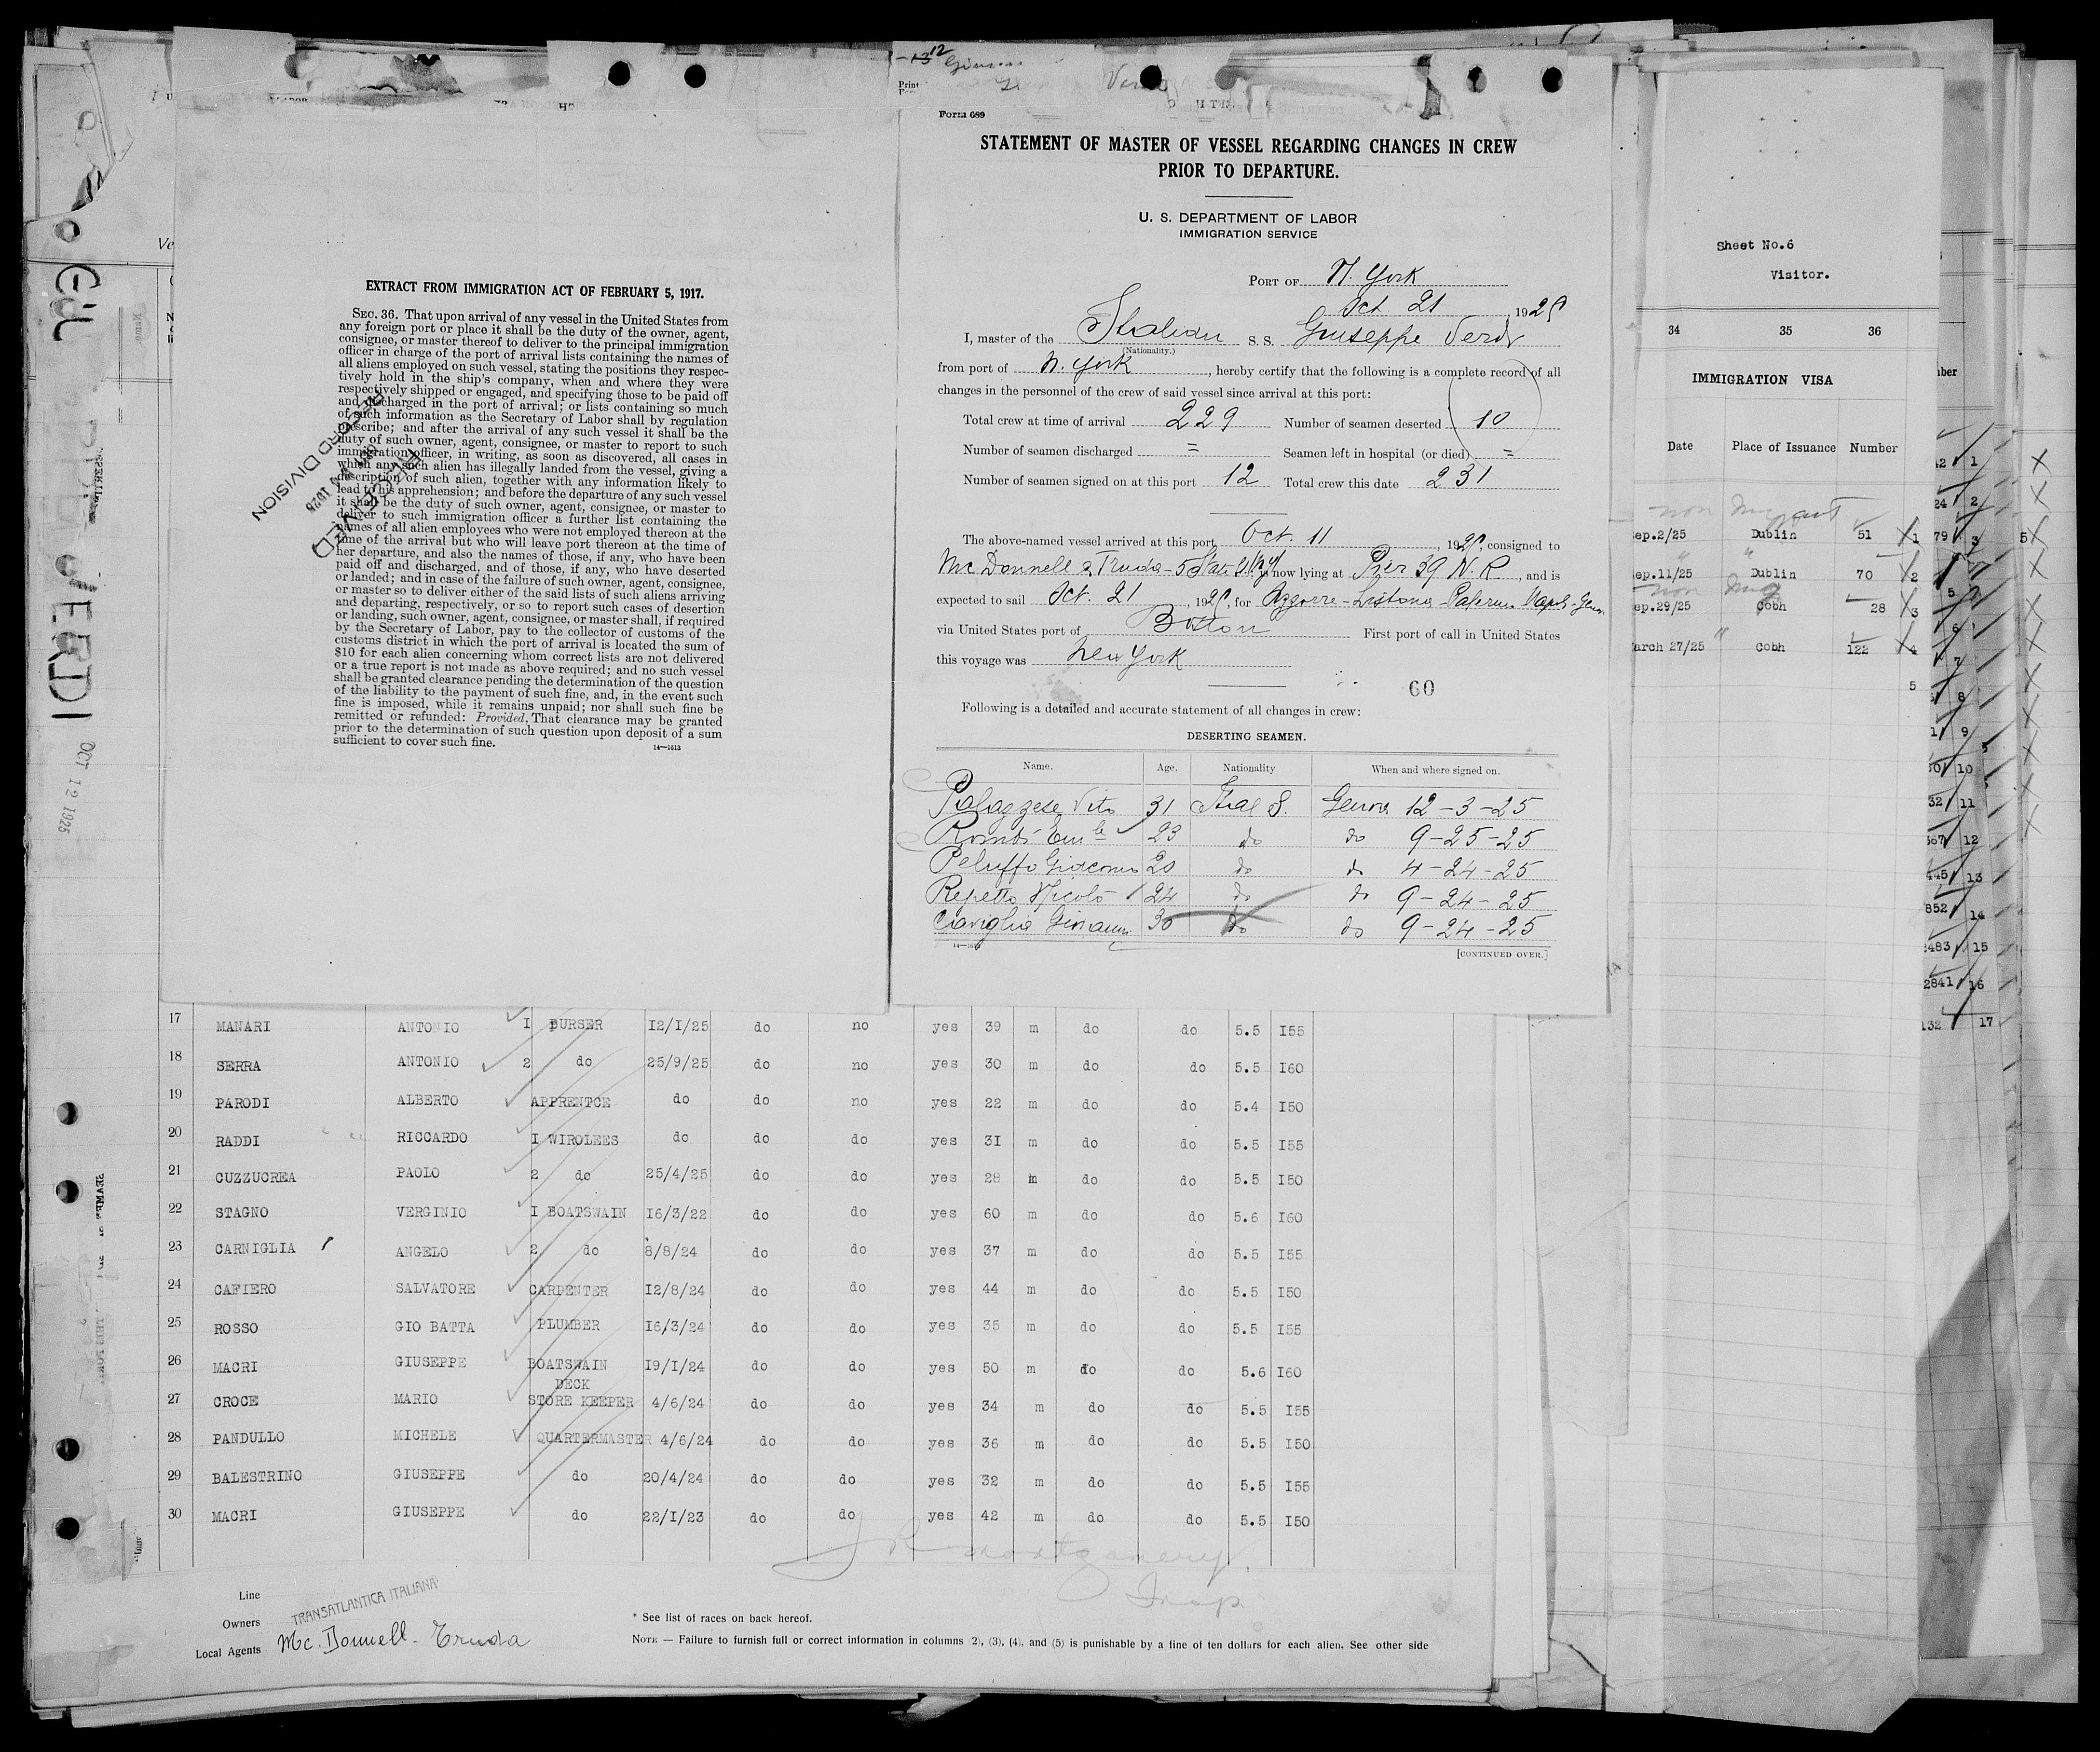 EXTRACT FROM IMMIGRATION ACT OF FEBRUARY 5, 1917.
SEC. 36. That upon arrival of any vessel in the United States from
any foreign port or place it shall be the duty of the owner, agent,
consignee, or master thereof to deliver to the principal immigration
officer in charge of the port of arrival lists containing the names of
all aliens employed on such vessel, stating the positions they respec-
tively hold in the ship's company, when and where they were
respectively shipped or engaged, and specifying those to be paid off
and discharged in the port of arrival; or lists containing so much
of such information as the Secretary of Labor shall by regulation
prescribe; and after the arrival of any such vessel it shall be the
duty of such owner, agent, consignee, or master to report to such
immigration officer, in writing, as soon as discovered, all cases in
which any such alien has illegally landed from the vessel, giving a
description of such alien, together with any information likely to
lead to his apprehension; and before the departure of any such vessel
it shall be the duty of such owner, agent, consignee, or master to
deliver to such immigration officer a further list containing the
names of all alien employees who were not employed thereon at the
time of the arrival but who will leave port thereon at the time of
her departure, and also the names of those, if any, who have been
paid off and discharged, and of those, if any, who have deserted
or landed; and in case of the failure of such owner, agent, consignee,
or master so to deliver either of the said lists of such aliens arriving
and departing, respectively, or so to report such cases of desertion
or landing, such owner, agent, consignee, or master shall, if required
by the Secretary of Labor, pay to the collector of customs of the
customs district in which the port of arrival is located the sum of
$10 for each alien concerning whom correct lists are not delivered
or a true report is not made as above required; and no such vessel
shall be granted clearance pending the determination of the question
of the liability to the payment of such fine, and, in the event such
fine is imposed, while it remains unpaid; nor shall such fine be
remitted or refunded: Provided, That clearance may be granted
prior to the determination of such question upon deposit of a sum
sufficient to cover such fine.
14—1613
RECEIVED
RECORD DIVISION
VERDI
OCT 12 1925
Form 689
STATEMENT OF MASTER OF VESSEL REGARDING CHANGES IN CREW
PRIOR TO DEPARTURE.
U. S. DEPARTMENT OF LABOR
IMMIGRATION SERVICE
PORT OF N. York
Oct 21, 1925
I, master of the Italian S. S. Giuseppe Verdi
(Nationality.)
from port of N. York, hereby certify that the following is a complete record of all
changes in the personnel of the crew of said vessel since arrival at this port:
Total crew at time of arrival 229 Number of seamen deserted 10
Number of seamen discharged = Seamen left in hospital (or died) =
Number of seamen signed on at this port 12 Total crew this date 231
The above-named vessel arrived at this port Oct. 11, 1925, consigned to
Mc Donnell & Truda - 5 State St. N.Y. is now lying at Pier 39 N. R., and is
expected to sail Oct. 21, 1925, for Azzorre - Lisbona - Palermo Napoli - Genova
via United States port of Boston First port of call in United States
this voyage was New York
60
Following is a detailed and accurate statement of all changes in crew:
DESERTING SEAMEN.
Name. Age. Nationality When and where signed on.
Palazzese Vito 31 Ital S. Genova 12-3-25
Rombi Em 23 do do 9-25-25
Peluffo Giacomo 20 do do 4-24-25
Repetto Nicolò 24 do do 9-24-25
Caviglia Giovanni 30 do do 9-24-25
[CONTINUED OVER.]
Sheet No.6
Visitor.
34 35 36
IMMIGRATION VISA
Date Place of Issuance Number
ep.2/25 Dublin 51 1
ep.11/25 Dublin 70 2
ep.29/25 Cobh 28 3
arch 27/25 Cobh 122 4
5
17 MANARI ANTONIO I PURSER I2/I/25 do no yes 39 m do do 5.5 I55
18 SERRA ANTONIO 2 do 25/9/25 do no yes 30 m do do 5.5 I60
19 PARODI ALBERTO APPRENTCE do do no yes 22 m do do 5.4 I50
20 RADDI RICCARDO I WIROLEES do do do yes 3I m do do 5.5 I55
21 CUZZUCREA PAOLO 2 do 25/4/25 do do yes 28 m do do 5.5 I50
22 STAGNO VERGINIO I BOATSWAIN I6/3/22 do do yes 60 m do do 5.6 I60
23 CARNIGLIA ANGELO 2 do 8/8/24 do do yes 37 m do do 5.5 I55
24 CAFIERO SALVATORE CARPENTER I2/8/24 do do yes 44 m do do 5.5 I50
25 ROSSO GIO BATTA PLUMBER I6/3/24 do do yes 35 m do do 5.5 I55
26 MACRI GIUSEPPE BOATSWAIN I9/I/24 do do yes 50 m do do 5.6 I60
DECK
27 CROCE MARIO STORE KEEPER 4/6/24 do do yes 34 m do do 5.5 I55
28 PANDULLO MICHELE QUARTERMASTER 4/6/24 do do yes 36 m do do 5.5 I50
29 BALESTRINO GIUSEPPE do 20/4/24 do do yes 32 m do do 5.5 I55
30 MACRI GIUSEPPE do 22/I/23 do do yes 42 m do do 5.5 I50
J R Montgomery
Insp
Line
Owners TRANSATLANTICA ITALIANA
Local Agents Mc. Donnell - Truda
* See list of races on back hereof.
NOTE — Failure to furnish full or correct information in columns (2), (3), (4), and (5) is punishable by a fine of ten dollars for each alien. See other side